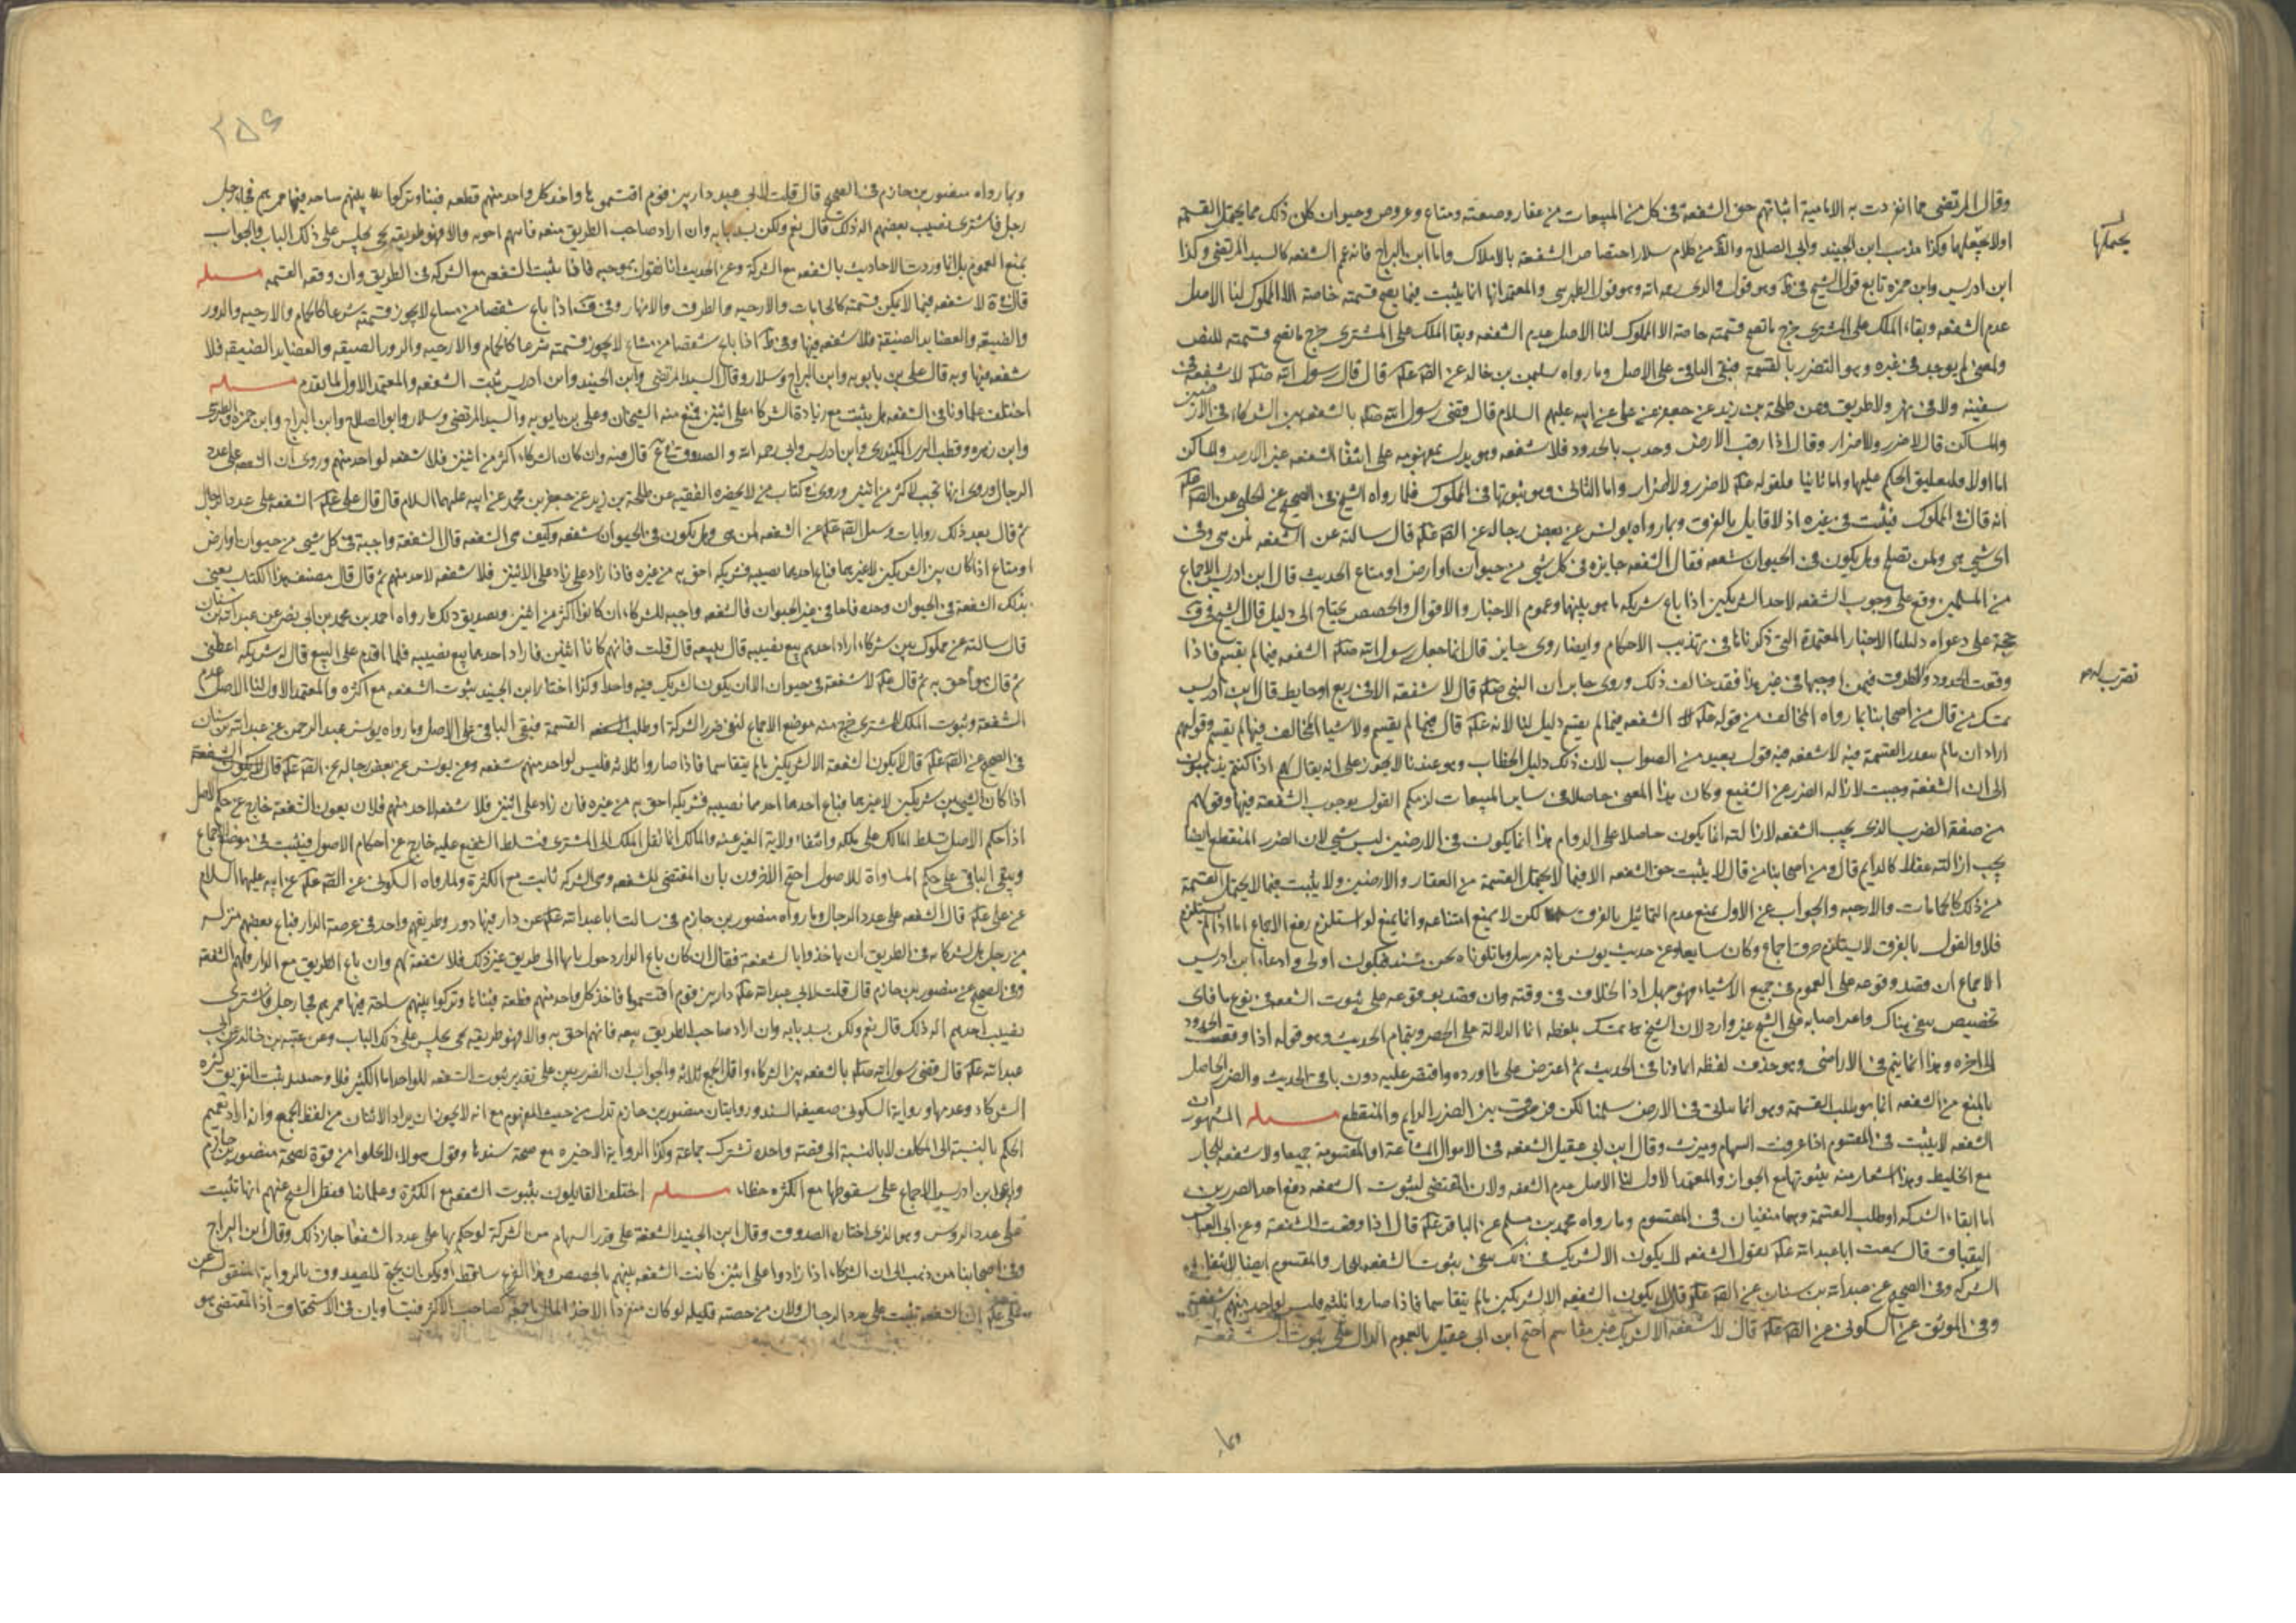 وقال المرتضى مما انفردت به الامامية اثباتهم حق الشفعة في كل من المبيعات من عقار وضيعة ومتاع وعروض وحيوان كان ذلك مما يحتمل القسمة
اولا يحتملها وكذا مذهب ابن الجنيد وابي الصلاح والظ من كلام سلار اختصاص الشفعة بالاملاك واما ابن البراج فانه عمم الشفعه كالسيد المرتضى وكذا
يحتملها
ابن ادريس وابن حمزه تابع قول الشيخ في ط وهو قول والدي رحمه الله وهو قول الطبرسي والمعتمد انها انما يثبت فيما يصح قسمته خاصة الا المملوك لنا الاصل
عدم الشفعه وبقاء الملك على المشترى خرج ما تصح قسمته خاصة الا المملوك لنا الاصل عدم الشفعه وبقا الملك على المشترى خرج ما تصح قسمته للنص
ولمعنى لم يوجد في غيره وهو التضرر بالقسمة فبقي الباقي على الاصل وما رواه سليمن بن خالد عن قال قال رسول الله لا شفعة في
سفينة ولا في نهر ولا طريق وعن طلحة بن زيد عن جعفر عن علي عن ابيه عليهم السلام قال قضى رسول الله بالشفعه بين الشركاء في الارضين
والمساكن قال لا ضرر ولا اضرار وقال اذا رفت الارض وحدت بالحدود فلا شفعه وهو يدل بمفهومه على انتفا الشفعه غير الارض والمساكن
اما اولا فلتعليق الحكم عليها واما ثانيا فلقوله لا ضرر ولا اضرار واما الثاني وهو ثبوتها في المملوك فلما رواه الشيخ في الصحيح عن الحلبي عن
انه قال في المملوك فيثبت في غيره اذ لا قايل بالفرق وبما رواه يونس عن بعض رجاله عن قال سالته عن الشفعه لمن هي وفي
اي شي هي ولمن تصلح وهل يكون في الحيوان شفعه فقال الشفعه جايزه في كل شي من حيوان او ارض او متاع الحديث قال ابن ادريس الاجماع
من المسلمين وقع على وجوب الشفعه لاحد الشريكين اذا باع شريكه ما هو بينهما وعموم الاخبار والاقوال والمخصص يحتاج الى دليل قال الشيخ في
حجة على دعواه دليلنا الاخبار المعتمدة التي ذكرناها في تهذيب الاحكام وايضا روى جابر قال انما جعل رسول الله الشفعه فيما لم يقسم فاذا
وقعت الحدود والطرق فيمن اوجبها في غير هذا فقد خالف ذلك وروى جابر ان النبي قال لا شفعة الا في ربع او حايط قال ابن ادريس
تمسك من قال من اصحابنا بما رواه المخالف من قوله الشفعه فيما لم يقسم دليل لنا لانه قال فيما لم يقسم ولاشيا المخالف فيما لم يقسم وقولهم
اراد ان مالم القسمة فيه لا شفعه فيه قول بعيد من الصواب لان ذلك دليل الخطاب وهو عندنا لا يجوز على انه يقال لهم اذا كنتم
الى ان الشفعة وجبت لازاله الضرر عن الشفيع وكان هذا المعنى حاصلا في ساير المبيعات لزمكم القول بوجوب الشفعة فيها وقولهم
من صفة الضرب الذي يجب الشفعه لازالته انما يكون حاصلا على الدوام هذا انما يكون في الارضين ليس بشي لان الضرر المنقطع ايضا
يجب ازالته عقلا كالدايم قال ومن اصحابنا من قال لا يثبت حق الشفعه الا فيما لا يحتمل القسمة من العقار والارضين ولا يثبت فيما لا يحتمل القسمة
من ذلك كالحمامات والارحيه والجواب عن الاول بمنع عدم القائل بالفرق لكن لا يمنع امتناعه وانما يمنع لو استلزم رفع الاجماع اما اذا لم يستلزم
فلا والقول بالفرق لا يستلزم خرق اجماع وكان سايغا وعن حديث يونس بانه مرسل وما تلوناه نحن مسند فيكون اولى وادعاء ابن ادريس
الاجماع ان قصد وقوعه على العموم في جميع الاشياء فهو جهل اذ الخلاف في وقته وان قصد وقوعه على ثبوت الشفعة في نوع ما فاي
تخصيص بقي هناك على الشيخ غير وارد لان الشيخ تمسك بلفظه انما الدالة على الحصر وبتمام الحديث وهو قوله اذا وقعت الحدود
الى اخره وهذا انما يتم في الاراضي وهو حذف لفظه انما وباقي الحديث ثم اعترض على ما اورده واقتصر عليه دون باقي الحديث والضرر الحاصل
بالمنع من الشفعه انما هو بطلب القسمة وهو انما في الارض سلمنا لكن فرق بين الضرر الدايم والمنقطع مسله المشهور ان
الشفعه لا يثبت في المقسوم اذا عرفت السهام وميزت وقال ابن ابي عقيل الشفعه في الاموال المشاعة او المقسومة جميعا ولا شفعه للجار
مع الخليط وهذا اشعار منه بثبوتها مع الجواز والمعتمد الاول لنا الاصل عدم الشفعه ولان المقتضى لثبوت الشفعه دفع احد الضررين
اما ابقاء الشركه او طلب القسمة وهما منفيان في المقسوم وما رواه محمد بن مسلم عن الباقر قال اذا وقعت الشفعة وعن ابي العباس
البقباق قال سمعت ابا عبد الله يقول الشفعه لا يكون الا لشريك
الشركه وفي الصحيح عن عبد الله بن سنان عن قال لا يكون الشفعه الا لشريكين مالم يتقاسما فاذا صاروا ثلثه فليس لواحد منهم شفعة
وفي الموثق عن السكوني عن قال لا شفعه الا لشريك غير مقاسم احتج ابن ابي عقيل بالعموم الدال على ثبوت الشفعة
وبما
۲۵۶
وبما رواه منصور بن حازم في الصحيح قال قلت لابي عبد دار بين قوم اقتسموها واخذ كل واحد منهم قطعه فبناها وتركوا بينهم ساحه فيها ممرهم فجاء رجل
رجل فاشترى نصيب بعضهم اله ذلك قال نعم ولكن يسد بابه وان اراد صاحب الطريق منعه فانهم احق به والا فهو طريقه يجلس على ذلك الباب والجواب
بمنع العموم بل انما وردت الاحاديث بالشفعه مع الشركة وعن الحديث انا نقول بموجبه فانا نثبت الشفعه مع الشركه في الطريق وان وقعه القسمه مسله
قال لا شفعه فيما لا يمكن قسمته كالحمامات والارحيه والطرق والانهار وفي اذا باع شقصا من مشاع لا يجوز قسمته شرعا كالحمام والارحيه والدور
والضيقه والعضايد الضيقه فلا شفعه فيها وفي ط اذا باع شقصا من مشاع لا يجوز قسمته شرعا كالحمام والارحيه والدور الضيقه والعضايد الضيقه فلا
شفعه فيها وبه قال علي بن بابويه وابن البراج وسلار وقال السيد المرتضى وابن الجنيد وابن ادريس يثبت الشفعه والمعتمد الاول لما تقدم مسله
اختلف علماونا في الشفعه هل يثبت مع زيادة الشركاء على اثنين فمنع منه الشيخان وعلي بن بابويه والسيد المرتضى وسلار وابو الصلاح وابن البراج وابن حمزه والطبرسي
وابن زهره وقطب الدين الكيدري وابن ادريس وابي رحمه الله والصدوق قال فيه وان كان الشركاء اكثر من اثنين فلا شفعه لواحد منهم وروى ان الشفعه على عدد
الرجال وروى انها تجب لاكثر من اثنين وروى في كتاب من لا يحضره الفقيه عن طلحة بن زيد عن جعفر بن محمد عن ابيه عليهما السلام قال قال علي الشفعه على عدد الرجال
ثم قال بعد ذلك روايات وسئل عن الشفعه لمن هي وهل يكون في الحيوان شفعه وكيف هي الشفعه قال الشفعة واجبة في كل شي من حيوان او ارض
او متاع اذا كان بين الشريكين لا غيرهما فباع احدهما نصيبه فشريكه احق به من غيره فاذا زاد على الاثنين فلا شفعه لاحد منهم ثم قال قال مصنف هذا الكتاب يعني
بذلك الشفعة في الحيوان وحده فاما في غير الحيوان فالشفعه واجبه للشركاء ان كانوا اكثر من اثنين وتصديق ذلك ما رواه احمد بن محمد بن ابي نصر عن عبد الله بن سنان
قال سالته عن مملوك بين شركاء اراد احدهم بيع نصيبه قال يبيعه قال قلت فانهم كانا اثنين فاراد احدهما بيع نصيبه فلما اقدم على البيع قال له شريكه اعطني
ثم قال هو احق به ثم قال لا شفعة في حيوان الا ان يكون الشريك فيه واحدا وكذا اختار ابن الجنيد ثبوت الشفعه مع اكثره والمعتمد الاول لنا الاصل عدم
الشفعة وثبوت الملك للمشترى خرج منه موضع الاجماع لنفي ضرر الشركة او طلب القسمة فبقي الباقي على الاصل وما رواه يونس عبد الرحمن عن عبد الله بن سنان
في الصحيح عن قال لا يكون الشفعة الا لشريكين مالم يتقاسما فاذا صاروا ثلاثه فليس لواحد منهم شفعه وعن يونس عن بعض رجاله عن قال
اذا كان الشي بين شريكين لا غيرهما فباع احدهما نصيبه فشريكه احق به من غيره فان زاد على اثنين فلا شفعه لاحد منهم فلان يعون الشفعة خارج عن حكم الاصل
اذ حكم الاصل تسلط المالك على ملكه وانتفاء ولاية الغير عنه والمالك انما نقل الملك الى المشترى فتسلط الشفيع عليه خارج عن احكام الاصول فيثبت في موضع الاجماع
ويبقى الباقي على حكم المساواة للاصول احتج الاخرون بان المقتضى للشفعه وهي الشركه ثابت مع الكثرة ولما رواه السكوني عن عن ابيه عليهما السلام
عن علي قال الشفعه على عدد الرجال وما رواه منصور بن حازم في سالت ابا عبد الله عن دار فيها دور وطريقهم واحد في عرصة الدار فباع بعضهم منزله
من رجل هل لشركائه في الطريق ان ياخذوا بالشفعة فقال ان كان باع الدار وحول بابها الى طريق غير ذلك فلا شفعة لهم وان باع الطريق مع الدار فلهم الشفعة
وفي الصحيح عن منصور بن حازم قال قلت لابي عبد الله دار بين قوم اقتسموها فاخذ كل واحد منهم قطعة فبناها وتركوا بينهم ساحة فيها ممرهم فجا رجل فاشترى
نصيب احدهم اله ذلك قال نعم ولكن يسد بابه وان اراد صاحب الطريق بيعه فانهم احق به والا فهو طريقه يجلس على ذلك الباب وعن عقبه بن خالد عن ابي
عبد الله قال قضى رسول الله بالشفعه بين الشركاء واقل الجمع ثلاثه والجواب ان الضرر على تقدير ثبوت الشفعه للواحد اما الكثير فلا
الشركاء وعدمها ورواية السكوني ضعيفه السند وروايتان منصور بن حازم تدل من حيث المفهوم مع انه لا يجوز ان يراد الاثنان من لفظ الجمع وان اراد تعميم
الحكم بالنسبة الى المكلف لا بالنسبة الى قضته واحده تشترك جماعة وكذا الرواية الاخيره مع صحة سندها وقول هولاء لا يخلوا من قوة لصحة منصور بن حازم
وادعى ابن ادريس الاجماع على سقوطها مع الكثره خطاء مسله اختلف القايلون بثبوت الشفعه مع الكثرة وعلمائنا فنقل الشيخ عنهم انها تثبت
على عدد الروس وهو الذي اختاره الصدوق وقال ابن الجنيد الشفعة على قدر السهام من الشركة لو حكم بها على عدد الشفعاء جاز ذلك وقال ابن البراج
وفي اصحابنا من ذهب الى ان الشركاء اذا زادوا على اثنين كانت الشفعه بينهم بالحصص وهذا الفرع ساقط ويمكن ان يحتج للصدوق بالرواية المنقوله عن
علي ان الشفعه تثبت على عدد الرجال ولان من حصته قليله لو كان منفردا الاخذ المال باجمعه كصاحب الاكثر فيتساويان في الاستحقاق اذ المقتضى هو